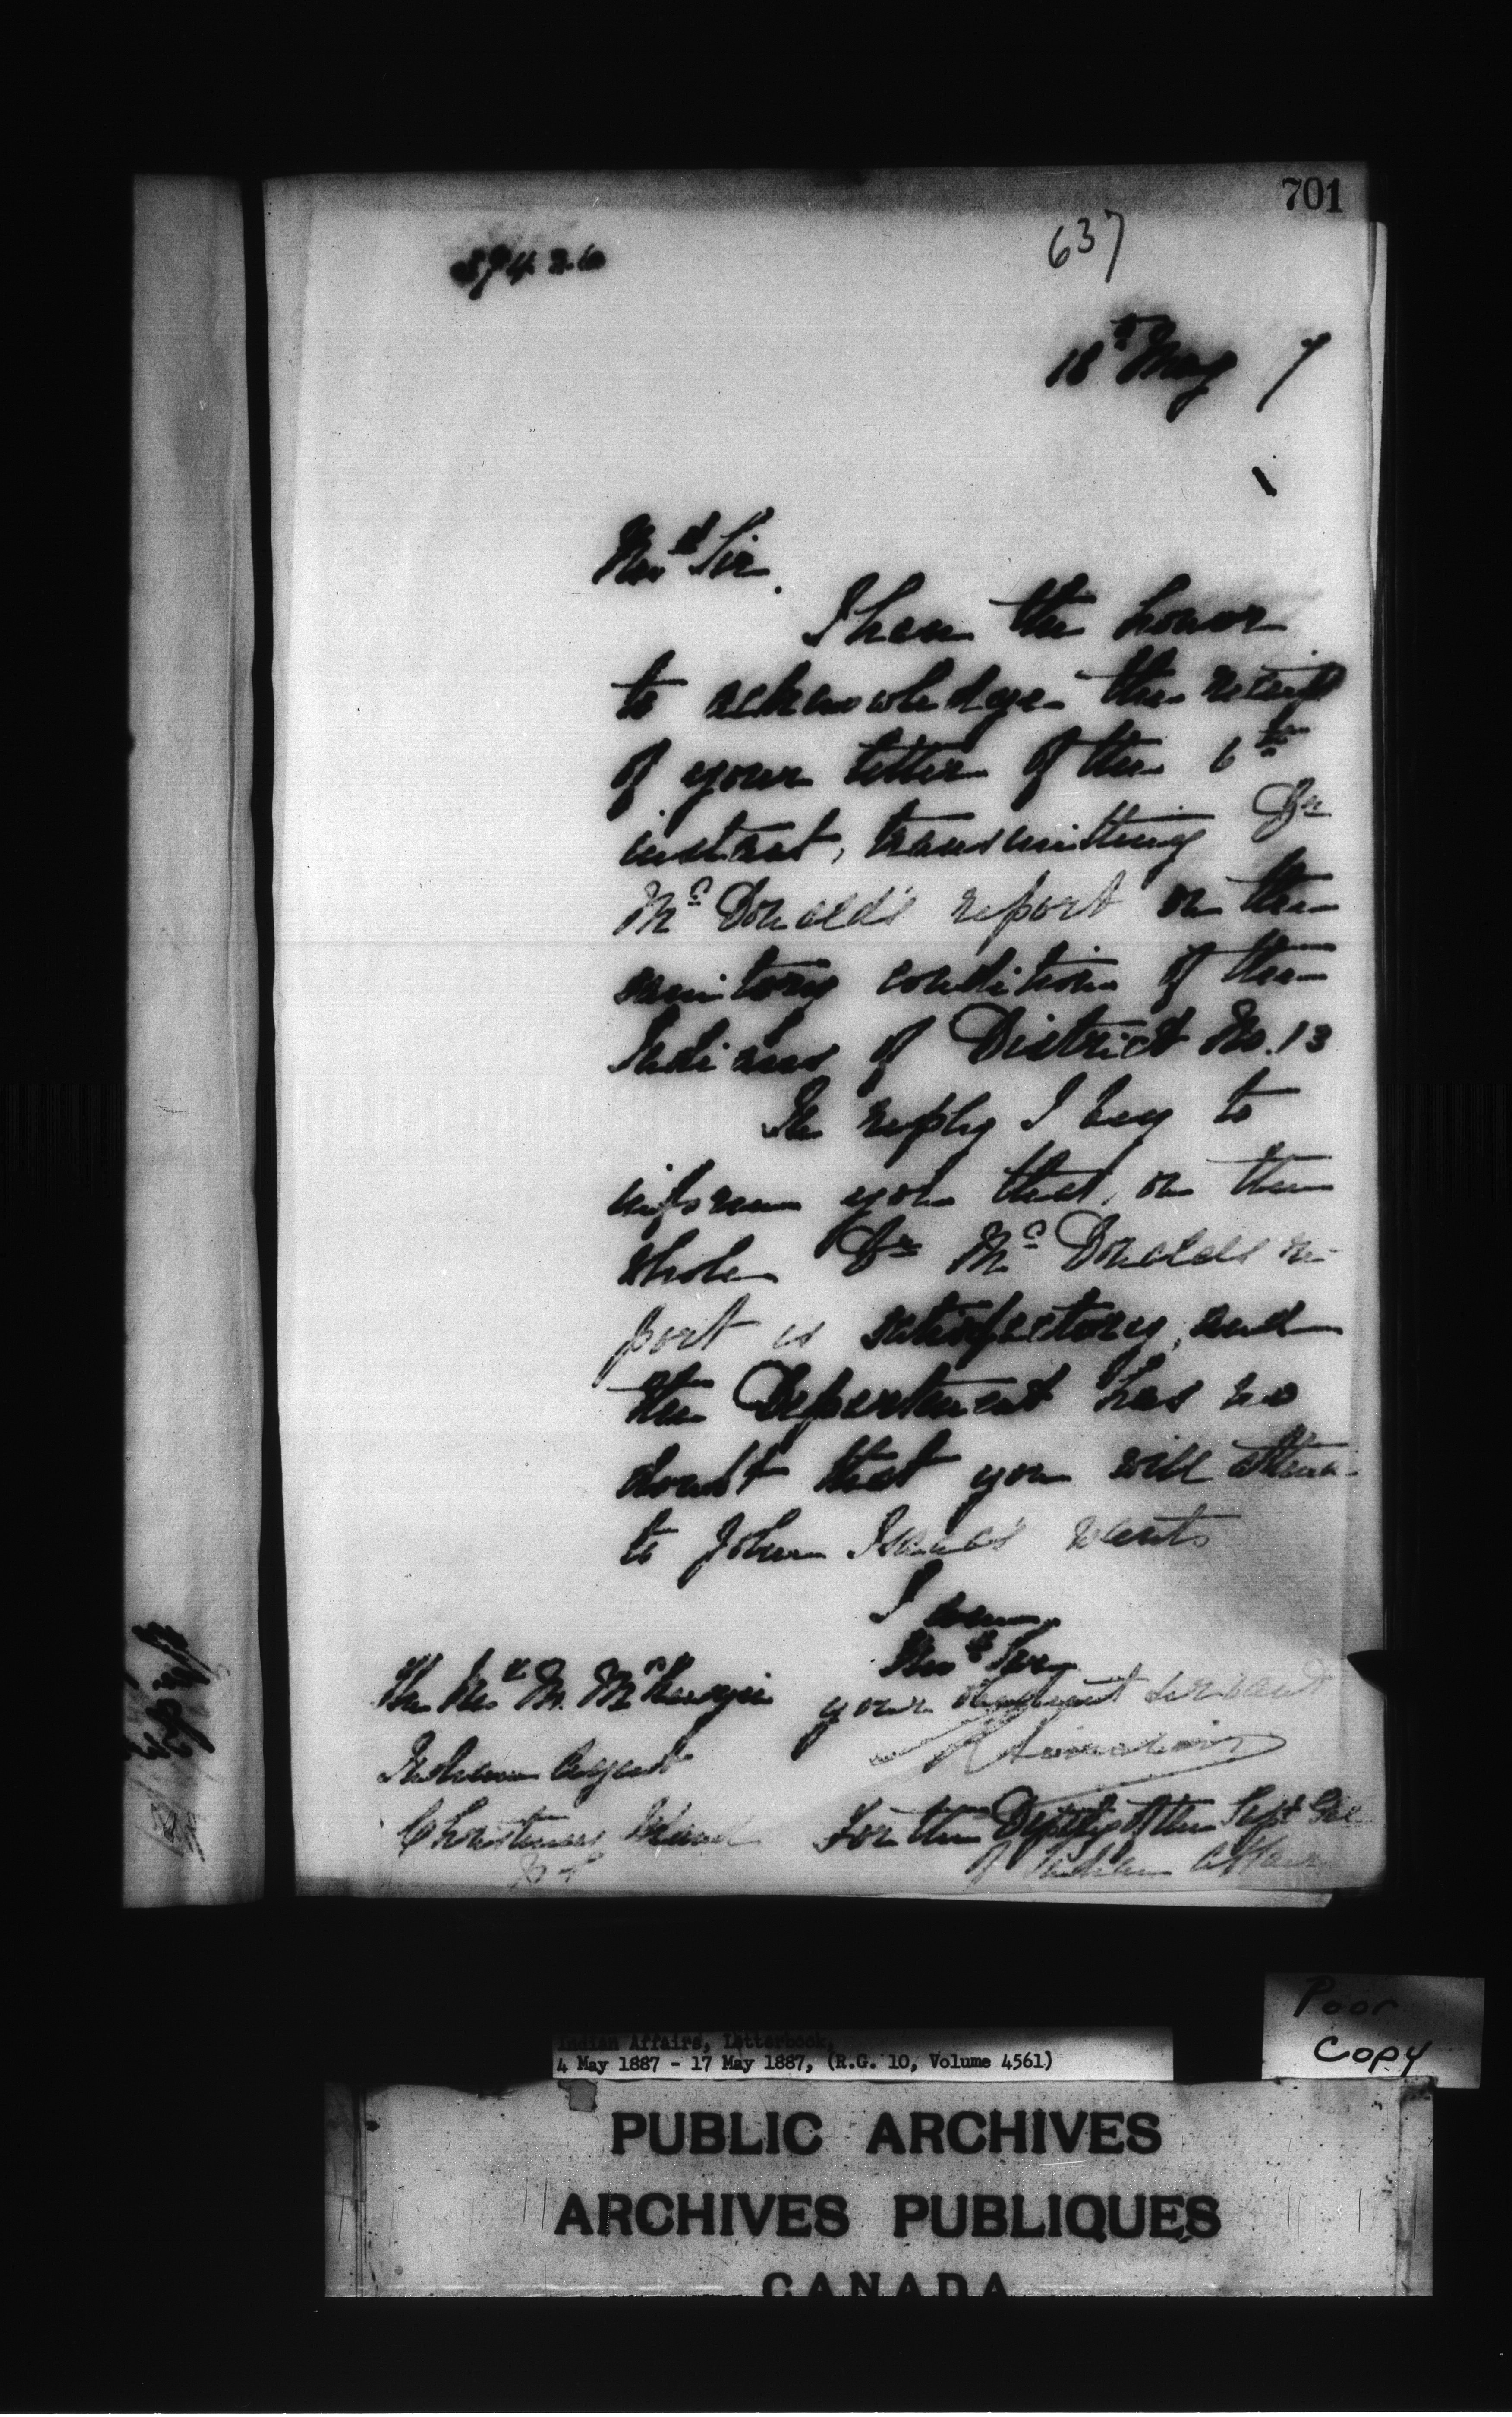 701
637
18th May 7
Revd Sir.
I have the honor
to acknowledge the receipt
of your letter of the 6th
instant, transmitting Dr
McDonald's report on the
sanitory condition of the
Indians of District No. 13
In reply I beg to
inform you that, on the
whole Dr McDonald's re-
port is satisfactory, and
the Department has no
doubt that you will attend
to John Isaac's wants
I am
Revd Sir
your obedient servant
The Revd
Indian Agent
Island
For the Deputy of the Supt Genl
of Indian Affairs
Poor
Copy
Indian Affairs, Letterbook,
4 May 1887 - 17 May 1887, (R.G. 10, Volume 4561)
PUBLIC ARCHIVES
ARCHIVES PUBLIQUES
CANADA